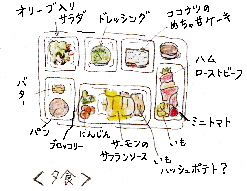 オリーブ入り
サラダ
ドレッシング
ココナツの
めちゃ甘ケーキ
バター
ハム
ローストビーフ
パン
ブロッコリー
にんじん
サーモンの
サフランソース
いも
ハッシュポテト?
いも
ミニトマト
<夕食>